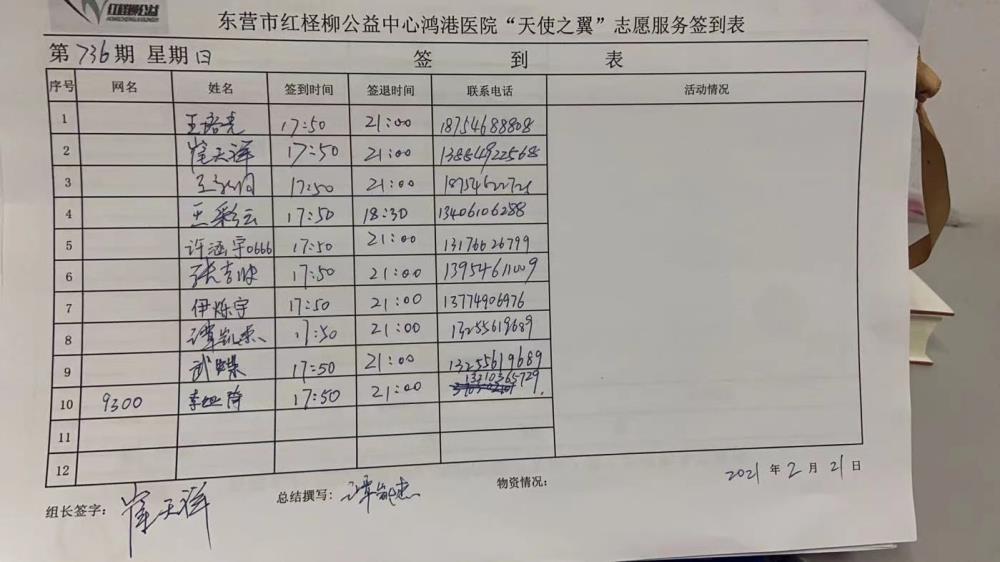 红柽柳公益
东营市红柽柳公益中心鸿港医院“天使之翼”志愿服务签到表
第736期 星期日 签到表
序号 网名 姓名 签到时间 签退时间 联系电话 活动情况
1 17:50 21:00 18754688808
2 崔天祥 17:50 21:00 13884922568
3 17:50 21:00
4 王彩云 17:50 18:30 13406106288
5 许涵宇0666 17:50 21:00 13176626799
6 17:50 21:00 13954611009
7 伊烁宇 17:50 21:00 13774906976
8 17:50 21:00 13255619689
9 17:50 21:00 13255619689
10 9300 17:50 21:00
11
12
2021年2月21日
组长签字：崔天祥 总结撰写： 物资情况：